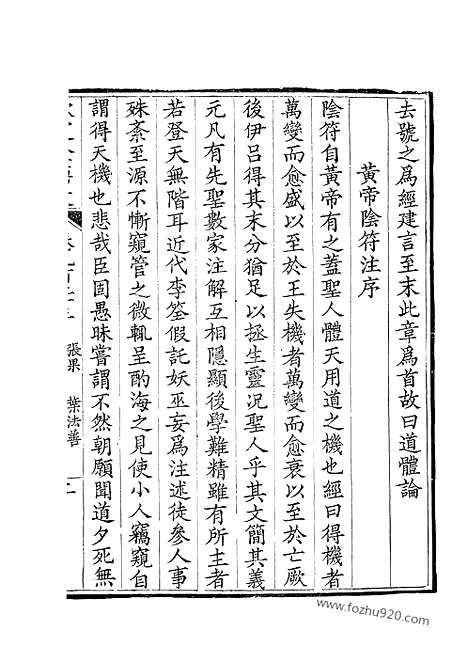 去號之爲經建言至末此章爲首故曰道體論
黃帝陰符注序
陰符自黃帝有之蓋聖人體天用道之機也經曰得機者
萬變而愈盛以至於王失機者萬變而愈衰以至於亡厥
後伊呂得其末分猶足以拯生靈況聖人乎其文簡其義
元凡有先聖數家注解互相隱顯後學難精雖有所主者
若登天無階耳近代李筌假託妖巫妄爲注述徒參人事
殊紊至源不慚窺管之微輒呈酌海之見使小人竊窺自
謂得天機也悲哉臣固愚昧嘗謂不然朝願聞道夕死無
張果 葉法善
www.fozhu920.com